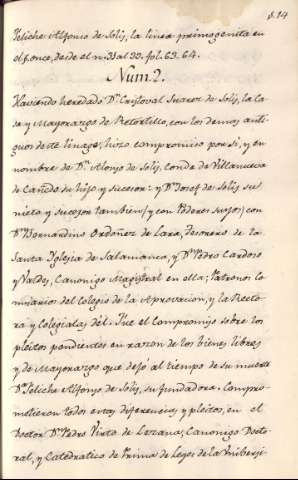 814
Feliche Alfonso de Solis, la linea primogenita en
el fonce, desde el n. 33 al 39. fol. 63. 64.
Num. 2.
Haviendo heredado Dn. Cristoval Suarez de Solis, la Ca
sa y Mayorazgo de Retortillo, con los demas anti
guos de este linage; hizo compromiso por si, y en
nombre de Dn. Alonso de Solis, Conde de Villanueva
de Cañedo su hijo y sucesor: y Dn. Josef de Solis su
nieto y sucesor tambien (y con Poderes suyos) con
Dn. Bernardino Ordoñez de Lara, Tesorero de la
Santa Iglesia de Salamanca, y Dn. Pedro Cardoso
y Valdes, Canonigo Magistral en ella; Patronos Co
misarios del Colegio de la Aprovacion, y la Recto
ra y Colegialas del. Fue el Compromiso sobre los
pleitos pendientes en razon de los bienes libres
y de Mayorazgo que dejó al tiempo de su muerte
Da. Feliche Alfonso de Solis, su fundadora. Compro
metieron todos estas diferencias y pleitos, en el
Doctor Dn. Pedro de Lezana; Canonigo Docto
ral, y Catedratico de Prima de Leges de la Universi-